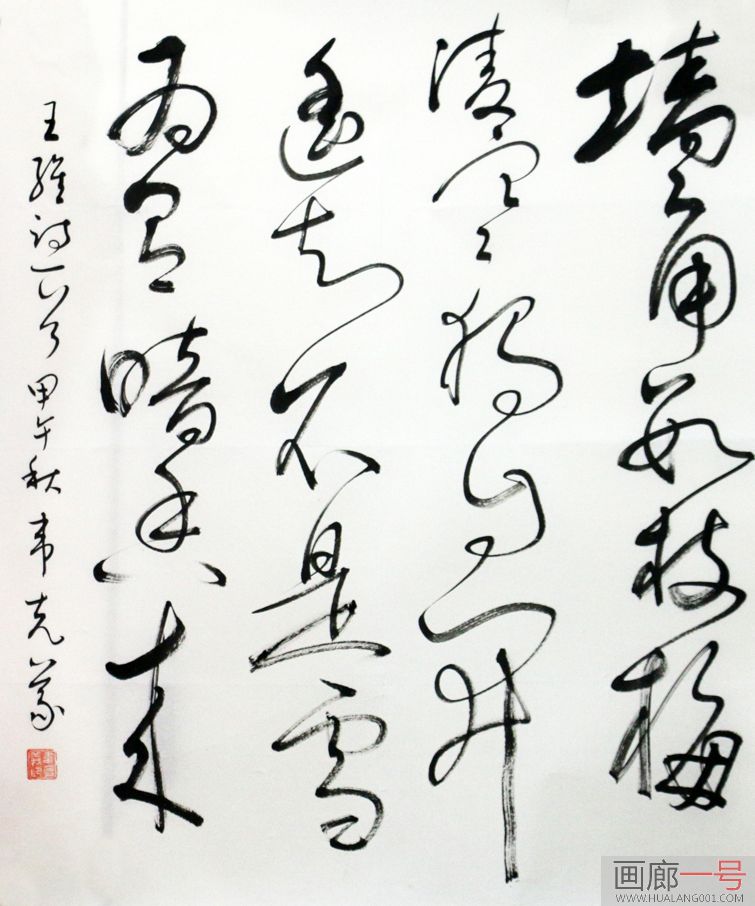 墙角数枝梅
凌寒独自开
遥知不是雪
为有暗香来
王维诗一首 甲午秋 韦克义
画廊一号
WWW.HUALANG001.COM